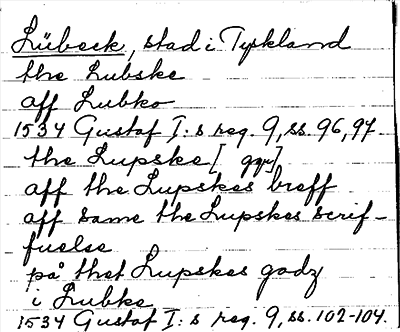 Lübeck, stad i Tyskland
the Lubske
aff Lubko
1534 Gustaf I:s reg. 9, ss. 96, 97.
the Lupske [ ggr]
aff the Lupskes breff
aff same the Lupskes scrif-
fuelse
på thet Lupskes godz
i Lubke
1534 Gustaf I:s reg. 9, ss. 102-104.